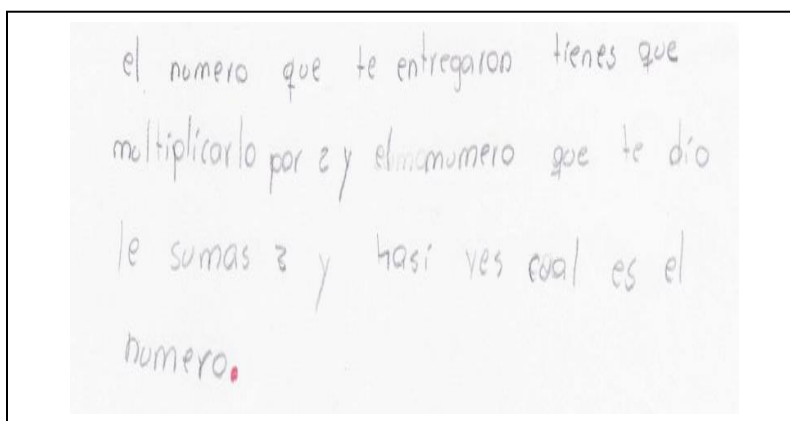 el numero que te entregaron tienes que
multiplicarlo por 2 y el numero que te dio
le sumas 2 y hasi ves cual es el
numero.